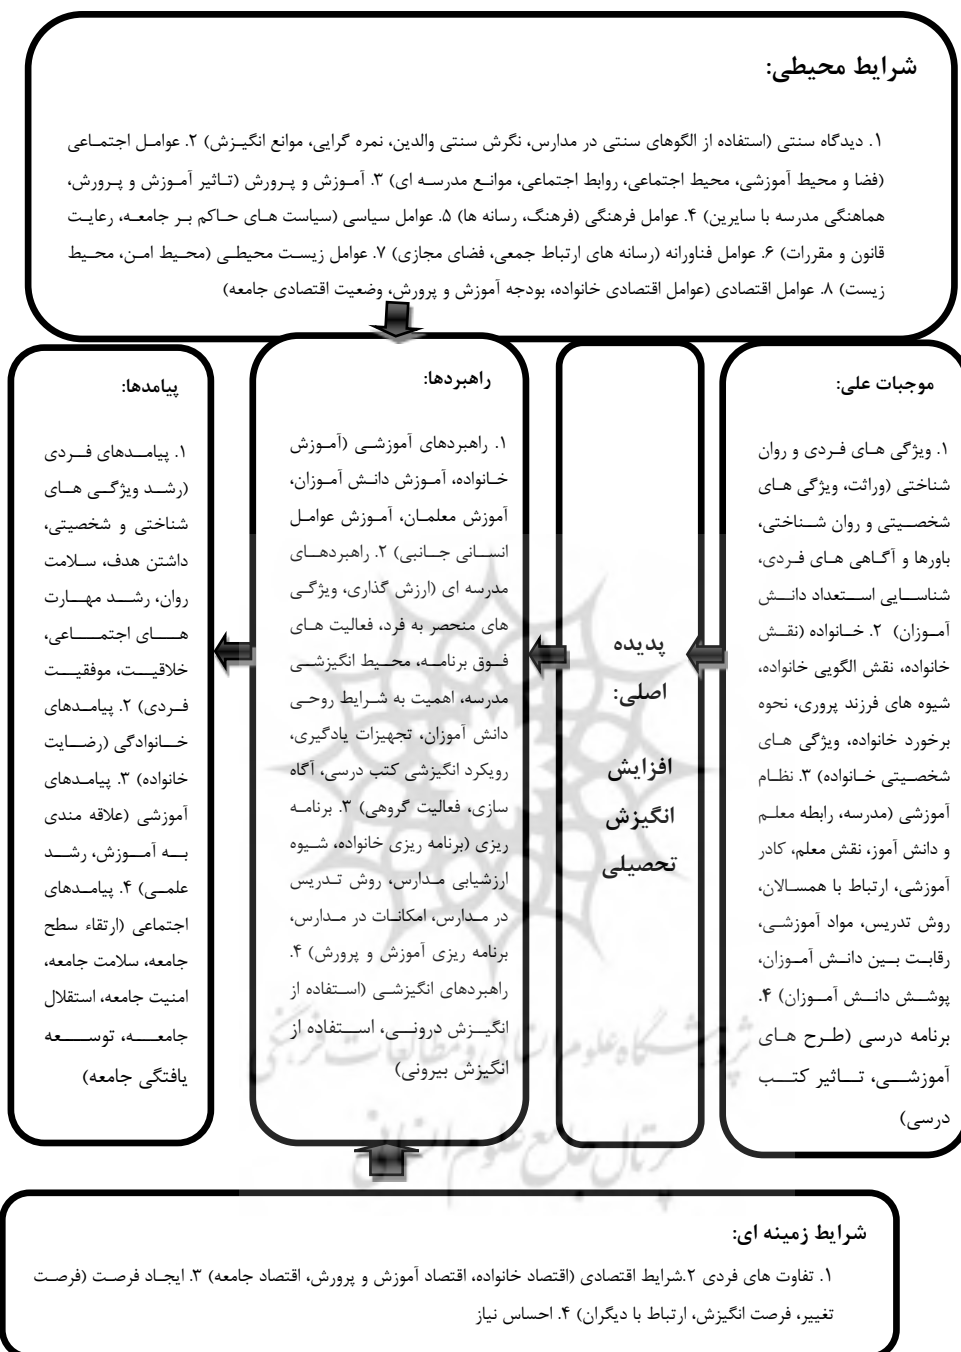 شرایط محیطی:
۱. دیدگاه سنتی (استفاده از الگوهای سنتی در مدارس، نگرش سنتی والدین، نمره گرایی، موانع انگیزش) ۲. عوامل اجتماعی
(فضا و محیط آموزشی، محیط اجتماعی، روابط اجتماعی، موانع مدرسه ای) ۳. آموزش و پرورش (تاثیر آموزش و پرورش،
هماهنگی مدرسه با سایرین) ۴. عوامل فرهنگی (فرهنگ، رسانه ها) ۵. عوامل سیاسی (سیاست های حاکم بر جامعه، رعایت
قانون و مقررات) ۶. عوامل فناورانه (رسانه های ارتباط جمعی، فضای مجازی) ۷. عوامل زیست محیطی (محیط امن، محیط
زیست) ۸. عوامل اقتصادی (عوامل اقتصادی خانواده، بودجه آموزش و پرورش، وضعیت اقتصادی جامعه)
موجبات علی:
۱. ویژگی های فردی و روان
شناختی (وراثت، ویژگی های
شخصیتی و روان شناختی،
باورها و آگاهی های فردی،
شناسایی استعداد دانش
آموزان) ۲. خانواده (نقش
خانواده، نقش الگویی خانواده،
شیوه های فرزند پروری، نحوه
برخورد خانواده، ویژگی های
شخصیتی خانواده) ۳. نظام
آموزشی (مدرسه، رابطه معلم
و دانش آموز، نقش معلم، کادر
آموزشی، ارتباط با همسالان،
روش تدریس، مواد آموزشی،
رقابت بین دانش آموزان،
پوشش دانش آموزان) ۴.
برنامه درسی (طرح های
آموزشی، تاثیر کتب
درسی)
پدیده
اصلی:
افزایش
انگیزش
تحصیلی
راهبردها:
۱. راهبردهای آموزشی (آموزش
خانواده، آموزش دانش آموزان،
آموزش معلمان، آموزش عوامل
انسانی جانبی) ۲. راهبردهای
مدرسه ای (ارزش گذاری، ویژگی
های منحصر به فرد، فعالیت های
فوق برنامه، محیط انگیزشی
مدرسه، اهمیت به شرایط روحی
دانش آموزان، تجهیزات یادگیری،
رویکرد انگیزشی کتب درسی، آگاه
سازی، فعالیت گروهی) ۳. برنامه
ریزی (برنامه ریزی خانواده، شیوه
ارزشیابی مدارس، روش تدریس
در مدارس، امکانات در مدارس،
برنامه ریزی آموزش و پرورش) ۴.
راهبردهای انگیزشی (استفاده از
انگیزش درونی، استفاده از
انگیزش بیرونی)
پیامدها:
۱. پیامدهای فردی
(رشد ویژگی های
شناختی و شخصیتی،
داشتن هدف، سلامت
روان، رشد مهارت
های اجتماعی،
خلاقیت، موفقیت
فردی) ۲. پیامدهای
خانوادگی (رضایت
خانواده) ۳. پیامدهای
آموزشی (علاقه مندی
به آموزش، رشد
علمی) ۴. پیامدهای
اجتماعی (ارتقاء سطح
جامعه، سلامت جامعه،
امنیت جامعه، استقلال
جامعه، توسعه
یافتگی جامعه)
پژوهشگاه علوم انسانی و مطالعات فرهنگی
پرتال جامع علوم انسانی
شرایط زمینه ای:
۱. تفاوت های فردی ۲.شرایط اقتصادی (اقتصاد خانواده، اقتصاد آموزش و پرورش، اقتصاد جامعه) ۳. ایجاد فرصت (فرصت
تغییر، فرصت انگیزش، ارتباط با دیگران) ۴. احساس نیاز